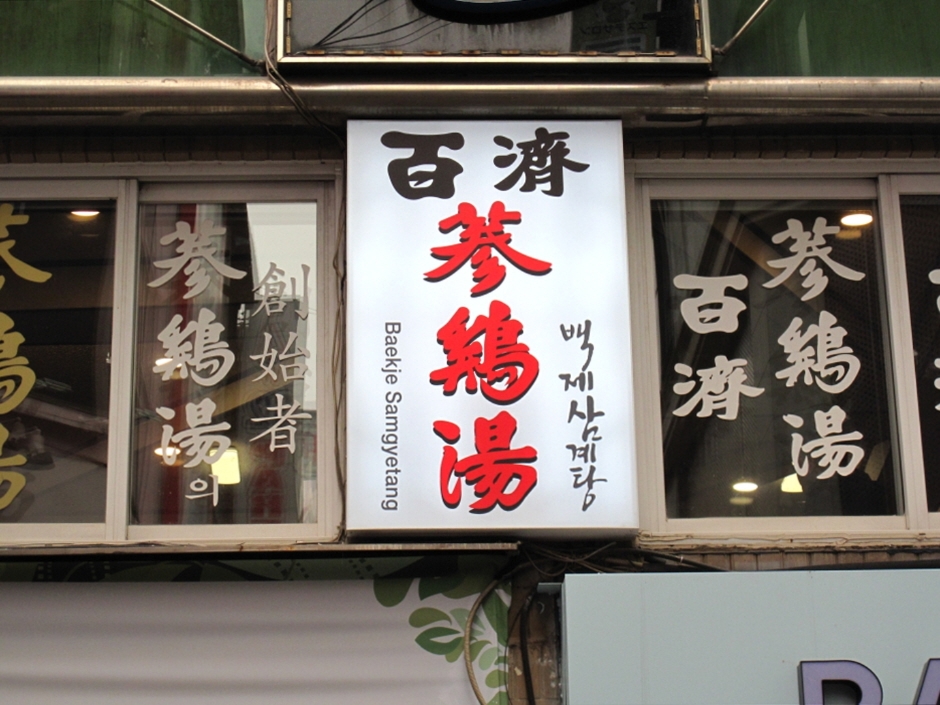 百濟
蔘鷄湯
백제삼계탕
Baekje Samgyetang
創始者
蔘鷄湯의
蔘鷄湯
百濟
蔘鷄湯